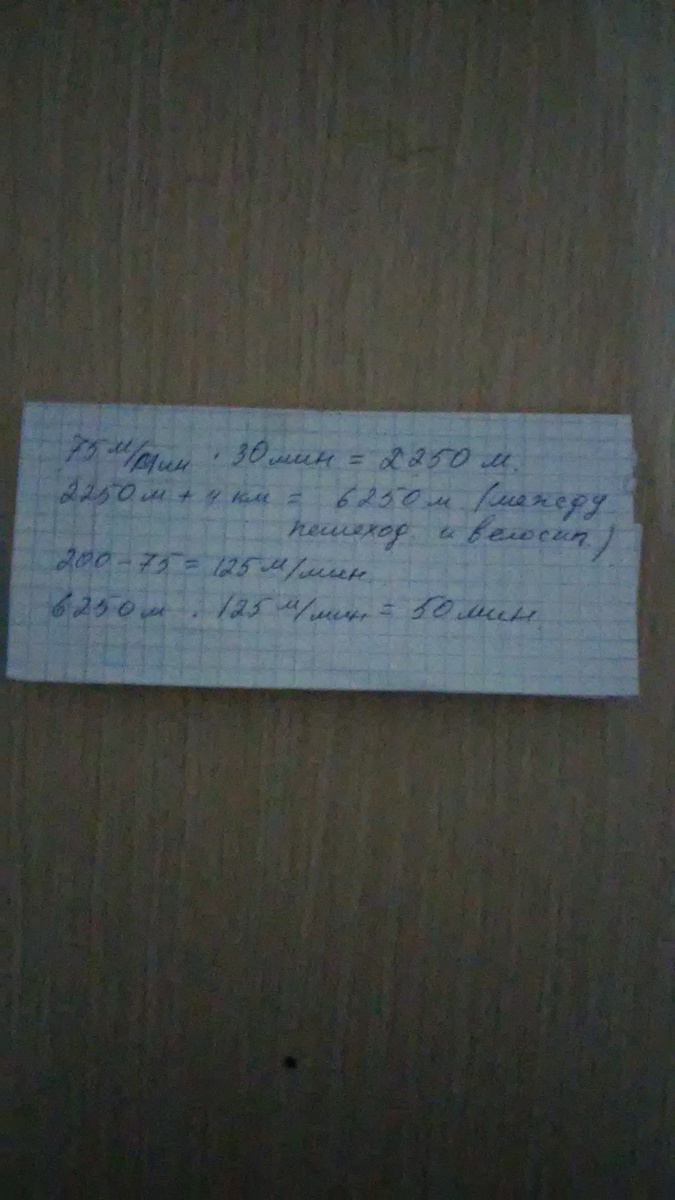 75 м/мин · 30 мин = 2250 м.
2250 м + 4 км = 6250 м (между
пешеход. и велосип.)
200 - 75 = 125 м/мин
6250 м . 125 м/мин = 50 мин.